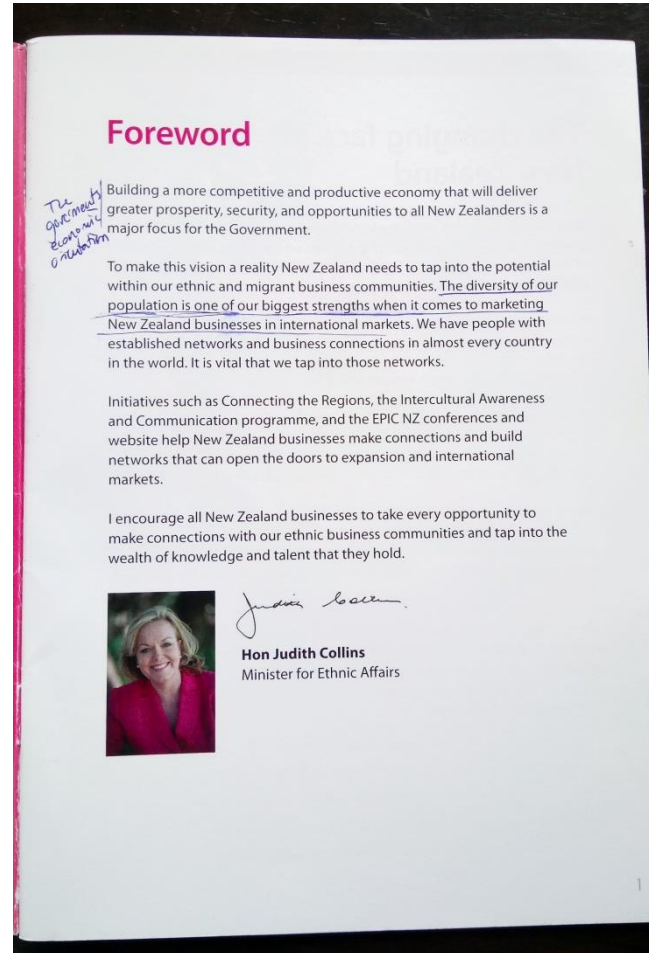 Foreword
The
government's
economic
orientation
Building a more competitive and productive economy that will deliver
greater prosperity, security, and opportunities to all New Zealanders is a
major focus for the Government.
To make this vision a reality New Zealand needs to tap into the potential
within our ethnic and migrant business communities. The diversity of our
population is one of our biggest strengths when it comes to marketing
New Zealand businesses in international markets. We have people with
established networks and business connections in almost every country
in the world. It is vital that we tap into those networks.
Initiatives such as Connecting the Regions, the Intercultural Awareness
and Communication programme, and the EPIC NZ conferences and
website help New Zealand businesses make connections and build
networks that can open the doors to expansion and international
markets.
I encourage all New Zealand businesses to take every opportunity to
make connections with our ethnic business communities and tap into the
wealth of knowledge and talent that they hold.
Judith Collins
Hon Judith Collins
Minister for Ethnic Affairs
1